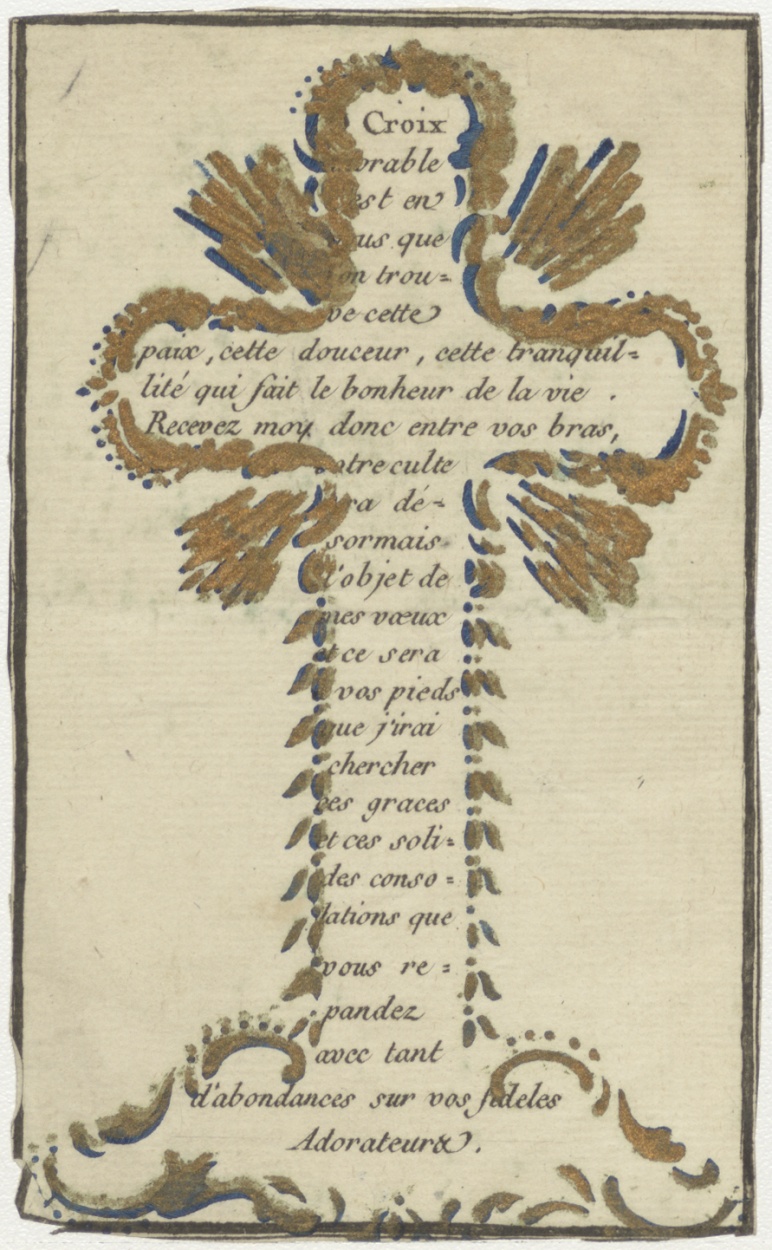 Croix
adorable
c'est en
vous que
l'on trou=
ve cette
paix, cette douceur, cette tranquil=
lité qui fait le bonheur de la vie.
Recevez moy donc entre vos bras,
votre culte
sera dé=
sormais
l'objet de
mes vœux
et ce sera
à vos pieds
que j'irai
chercher
ces graces
et ces soli=
des conso=
lations que
vous re=
pandez
avec tant
d'abondances sur vos fideles
Adorateurs.